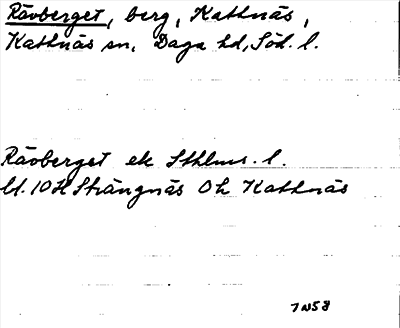 Rävberget, berg, Kattnäs,
Kattnäs sn, Daga hd, Söd. l.
Rävberget ek Sthlms. l.
bl. 10H Strängnäs Oh Kattnäs
7NS8